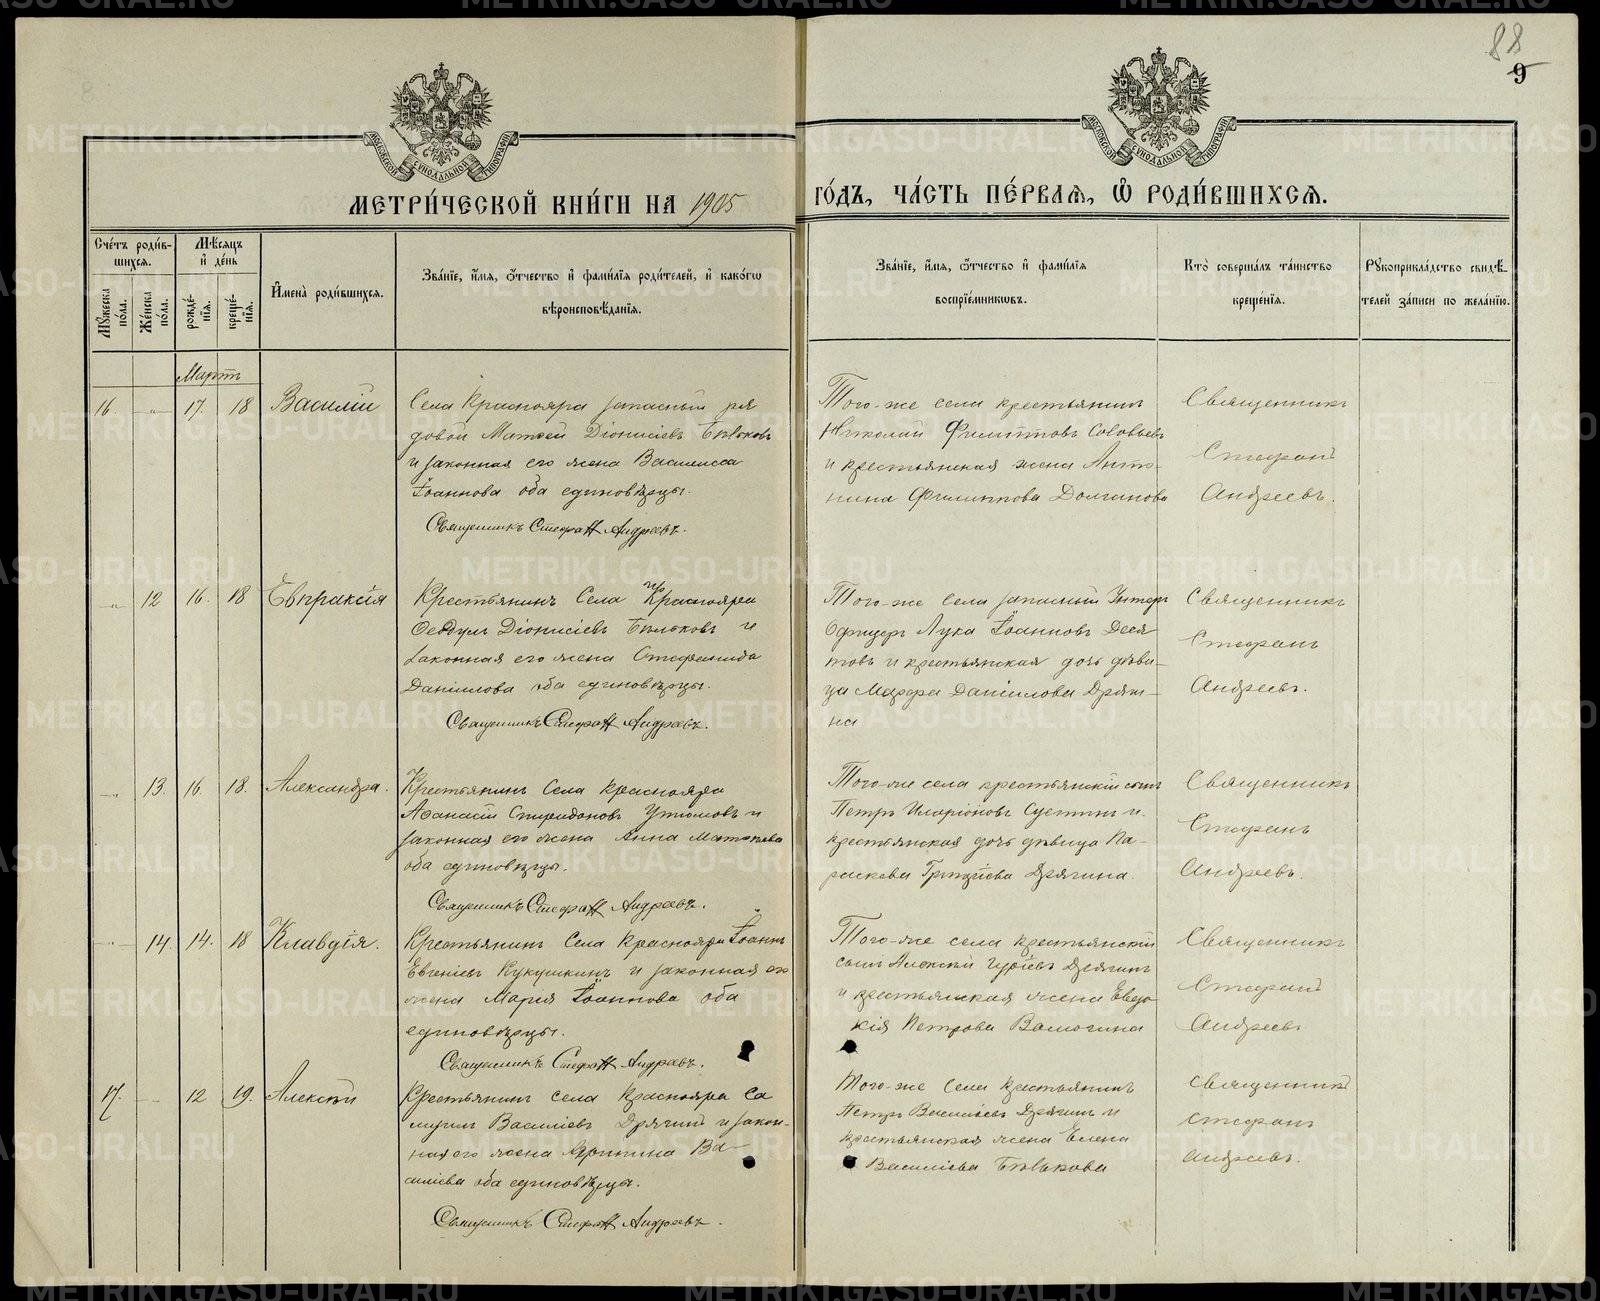 88
9
МОСКОВСКОЙ СѴНОДАЛЬНОЙ ТИПОГРАФІИ
МОСКОВСКОЙ СѴНОДАЛЬНОЙ ТИПОГРАФІИ
МЕТРИ́ЧЕСКОЙ КНИ́ГИ НА 1905 ГО́ДЪ, ЧА́СТЬ ПЕ́РВАѦ, Ѽ РОДИ́ВШИХСѦ.
Сче́тъ роди́в-
шихсѧ.
Мꙋ́жеска по́ла.
Же́нска по́ла.
Мѣ́сѧцъ
и҆ де́нь
рожде́-
нїѧ.
креще́-
нїѧ.
И҆мена̀ роди́вшихсѧ.
Зва́нїе, и҆́мѧ, ѻ҆́тчество и҆ фами́лїѧ роди́телей, и҆ како́гѡ
вѣроисповѣ́данїѧ.
Зва́нїе, и҆́мѧ, ѻ҆́тчество и҆ фами́лїѧ
воспрїе́мникѡвъ.
Кто̀ соверша́лъ та́инство
креще́нїѧ.
Рꙋкоприкла́дство свидѣ́-
телей за́писи по жела́нїю.
Мартъ
16. „ 17. 18 Василій
Села Краснояра запасный ря
довой Матвей Діонисіевъ Бѣльковъ
и законная его жена Василисса
Іоаннова оба единовѣрцы.
Священникъ Стефанъ Андреевъ.
Того-же села крестьянинъ
Николай Филипповъ Соловьевъ
и крестьянская жена Анто-
нина Филиппова Долганова
Священникъ
Стефанъ
Андреевъ.
„ 12 16. 18 Евпраксія
Крестьянинъ Села Краснояра
Ѳеодулъ Діонисіевъ Бѣльковъ и
законная его жена Стефанида
Даніилова оба единовѣрцы.
Священникъ Стефанъ Андреевъ.
Того-же села запасный Унтеръ
Офицеръ Лука Іоанновъ Деся
товъ и крестьянская дочь дѣви-
ца Марѳа Даніилова Дряги-
на
Священникъ
Стефанъ
Андреевъ.
„ 13. 16. 18. Александра.
Крестьянинъ Села Краснояра
Аѳанасій Спиридоновъ Утюмовъ и
законная его жена Анна Матѳѣева
оба единовѣрцы.
Священникъ Стефанъ Андреевъ.
Того-же села крестьянскій сынъ
Петръ Иларіоновъ Суетинъ и
крестьянская дочь дѣвица Па-
раскева Дрягина.
Священникъ
Стефанъ
Андреевъ.
„ 14. 14. 18 Клавдія.
Крестьянинъ Села Краснояра Іоаннъ
Евгеніевъ Кукушкинъ и законная его
жена Марія Іоаннова оба
единовѣрцы.
Священникъ Стефанъ Андреевъ.
Того-же села крестьянскій
сынъ Алексѣй Гуріевъ Дрягинъ
и крестьянская жена Евдо
кія Петрова Валюгина
Священникъ
Стефанъ
Андреевъ
17. 12 19. Алексѣй
Крестьянинъ села Краснояра Са
муилъ Василіевъ Дрягинъ и закон-
ная его жена Иринина Ва-
силіева оба единовѣрцы.
Священникъ Стефанъ Андреевъ.
Того-же Села крестьянинъ
Петръ Василіевъ Дрягинъ и
крестьянская жена Елена
Василіева Бѣлькова
Священникъ
Стефанъ
Андреевъ.
METRIKI.GASO-URAL.RU